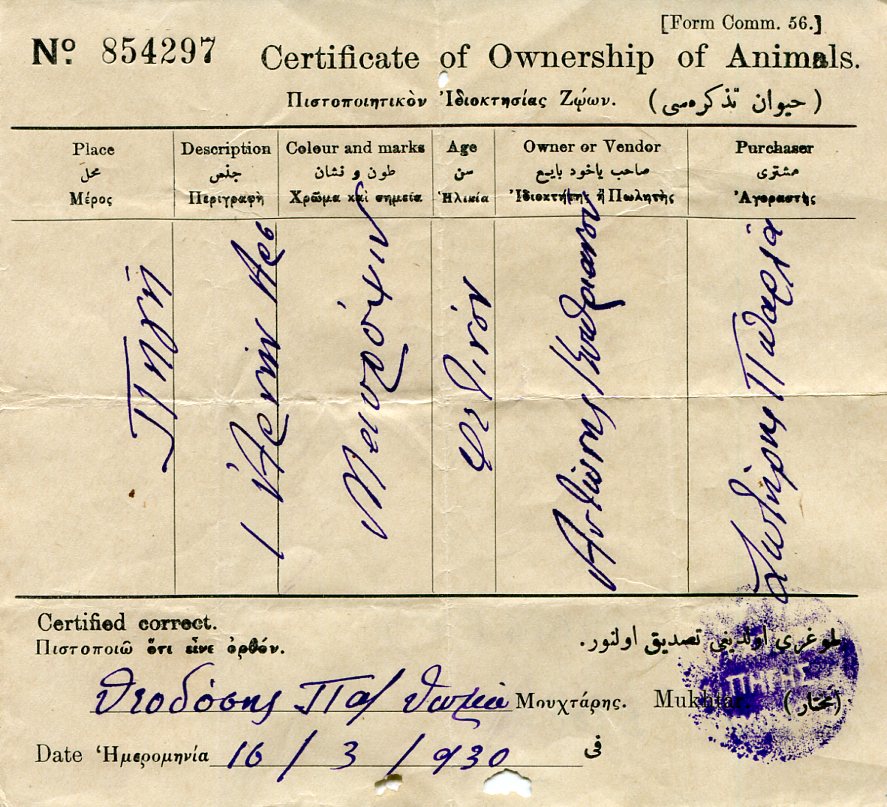 [Form Comm. 56.]
Nº 854297 Certificate of Ownership of Animals.
Πιστοποιητικὸν Ἰδιοκτησίας Ζῴων. (حيوان تذكره‌سى)
Place Description Colour and marks Age Owner or Vendor Purchaser
محل جنس طون و نشان سن صاحب ياخود بايع مشترى
Μέρος Περιγραφὴ Χρῶμα καὶ σημεῖα Ἡλικία Ἰδιοκτήτης ἢ Πωλητὴς Ἀγοραστὴς
Πηγὴ
Μαυρόψιν
Φετινόν
Σωτήρης
Certified correct.
Πιστοποιῶ ὅτι εἶνε ὀρθόν. طوغرى اولديغى تصديق اولنور.
Θεοδόσης Πα/ Θωμᾶ Μουχτάρης. Mukhtar. (مختار)
ΠΗΓΗΣ
Date Ἡμερομηνία 16 / 3 / 930 فى